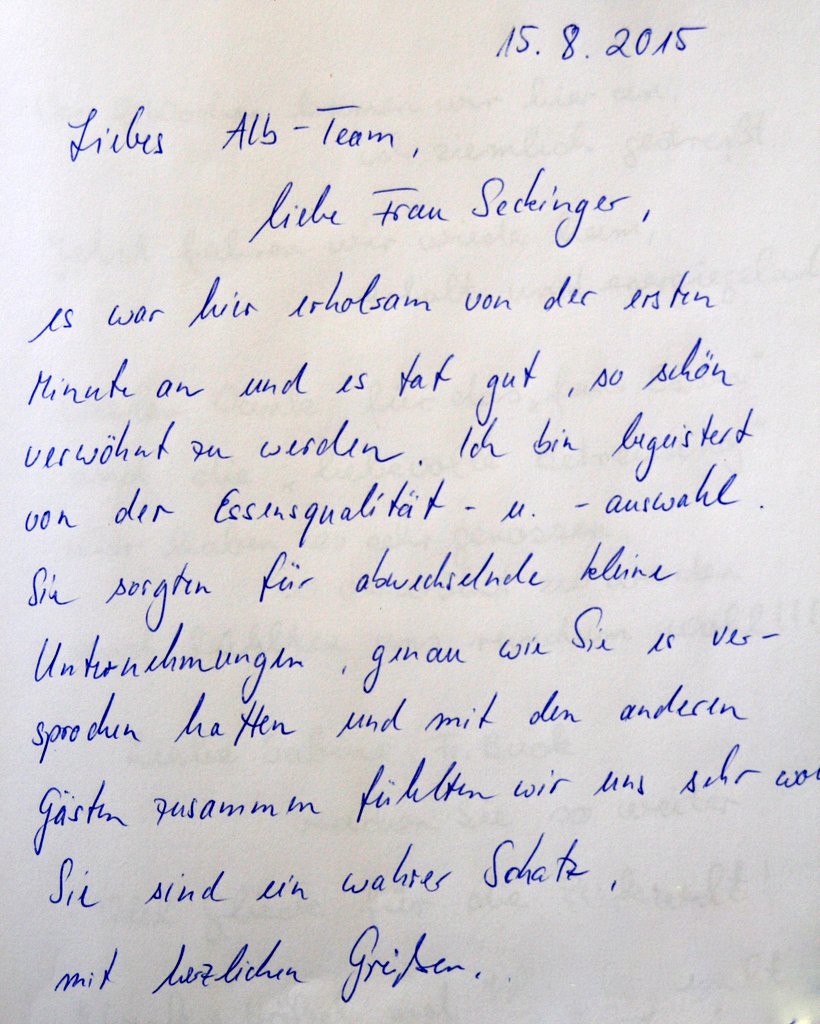 15. 8. 2015
Liebes Alb-Team,
liebe Frau Seckinger,
es war hier erholsam von der ersten
Minute an und es tat gut, so schön
verwöhnt zu werden. Ich bin begeistert
von der Essensqualität - u. - auswahl.
Sie sorgten für abwechselnde kleine
Unternehmungen, genau wie Sie es ver-
sprochen hatten und mit den anderen
Gästen zusammen fühlten wir uns sehr wo
Sie sind ein wahrer Schatz,
mit herzlichen Grüßen,